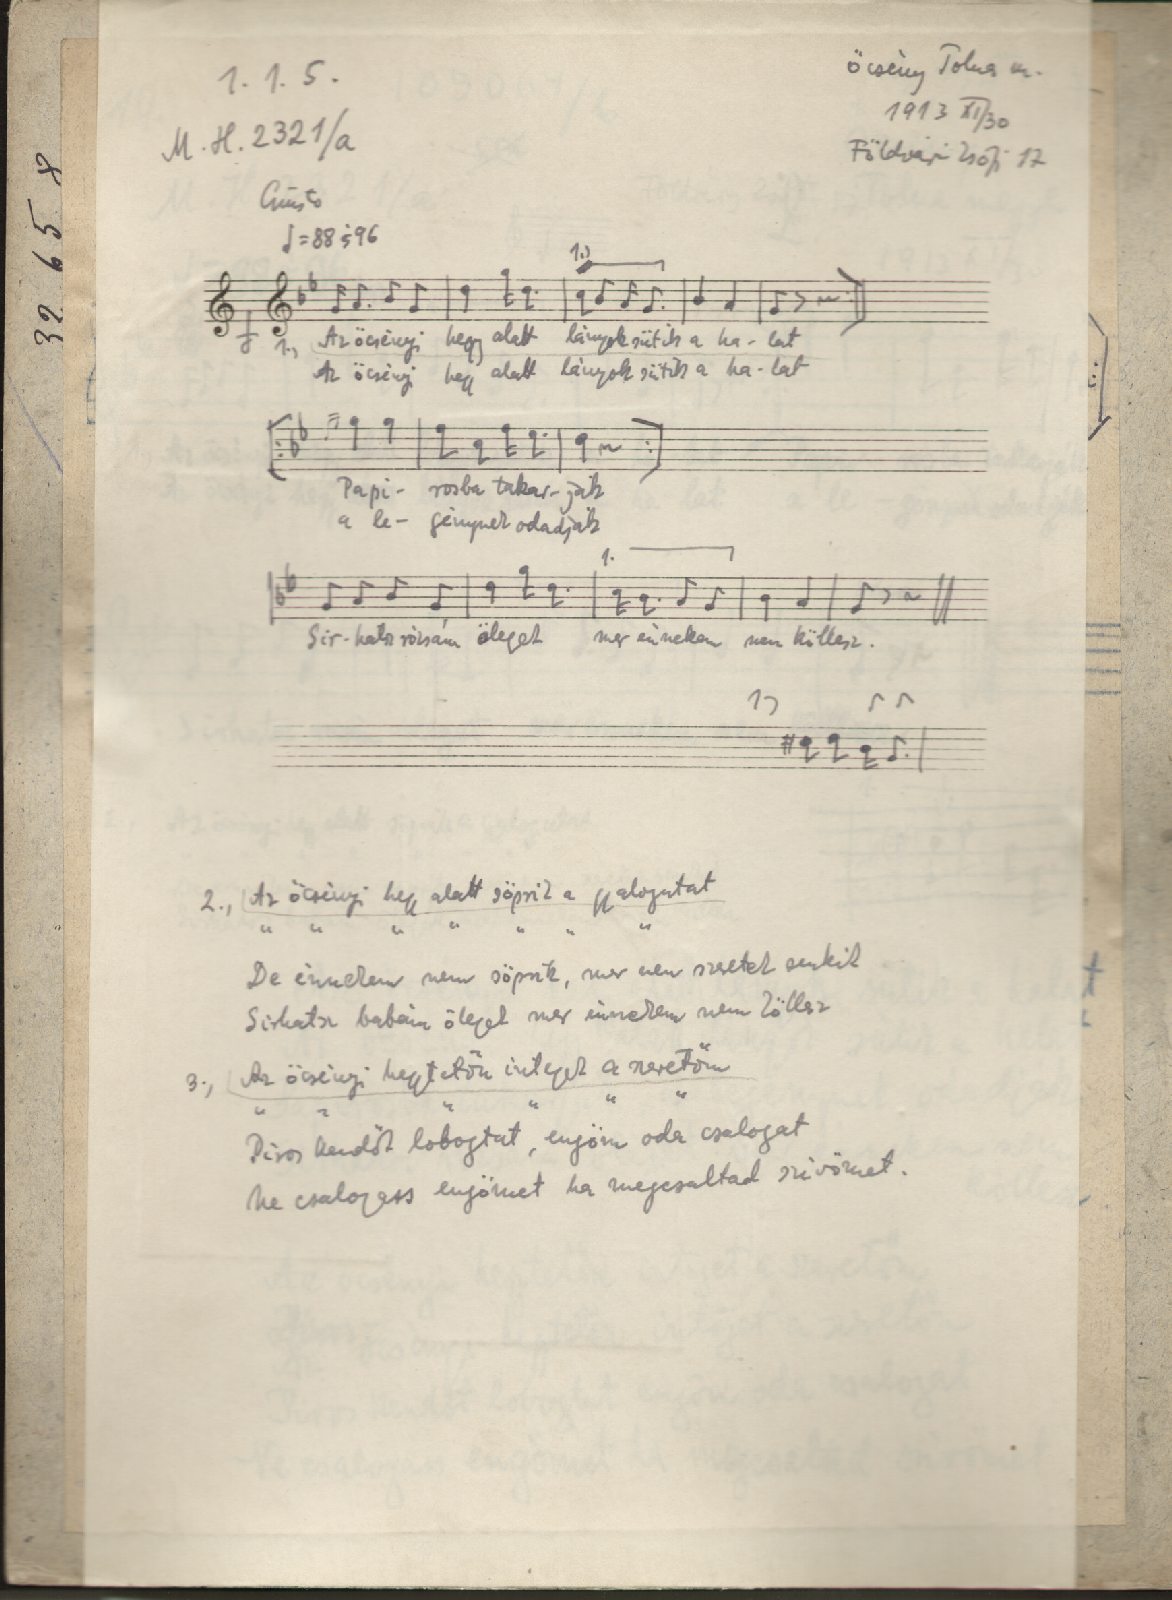 1.1.5.
M.H. 2321/a
Öcsény Tolna m.
1913 XI/30
Földvári Zsófi 17
32 65 8
Giusto
♩=88 í 96
1.)
1., Az öcsényi hegy alatt lányok sütik a ha-lat
Az öcsényi hegy alatt lányok sütik a ha-lat
Papi- rosba takar-ják
a le- génynek odadják
1.
Sir-hatsz rózsám öleget mer énnekem nem köllesz.
1)
2., Az öcsényi hegy alatt söprik a gyalogutat
" " " " " " "
De énnekem nem söprik, mer nem szeretek senkit
Sirhatsz babám öleget mer énnekem nem köllesz
3., Az öcsényi hegytetőn integet a szeretőm
" " " " " "
Piros kendőt lobogtat, engöm oda csalogat
Ne csalogass engömet ha megcsaltad szivömet.